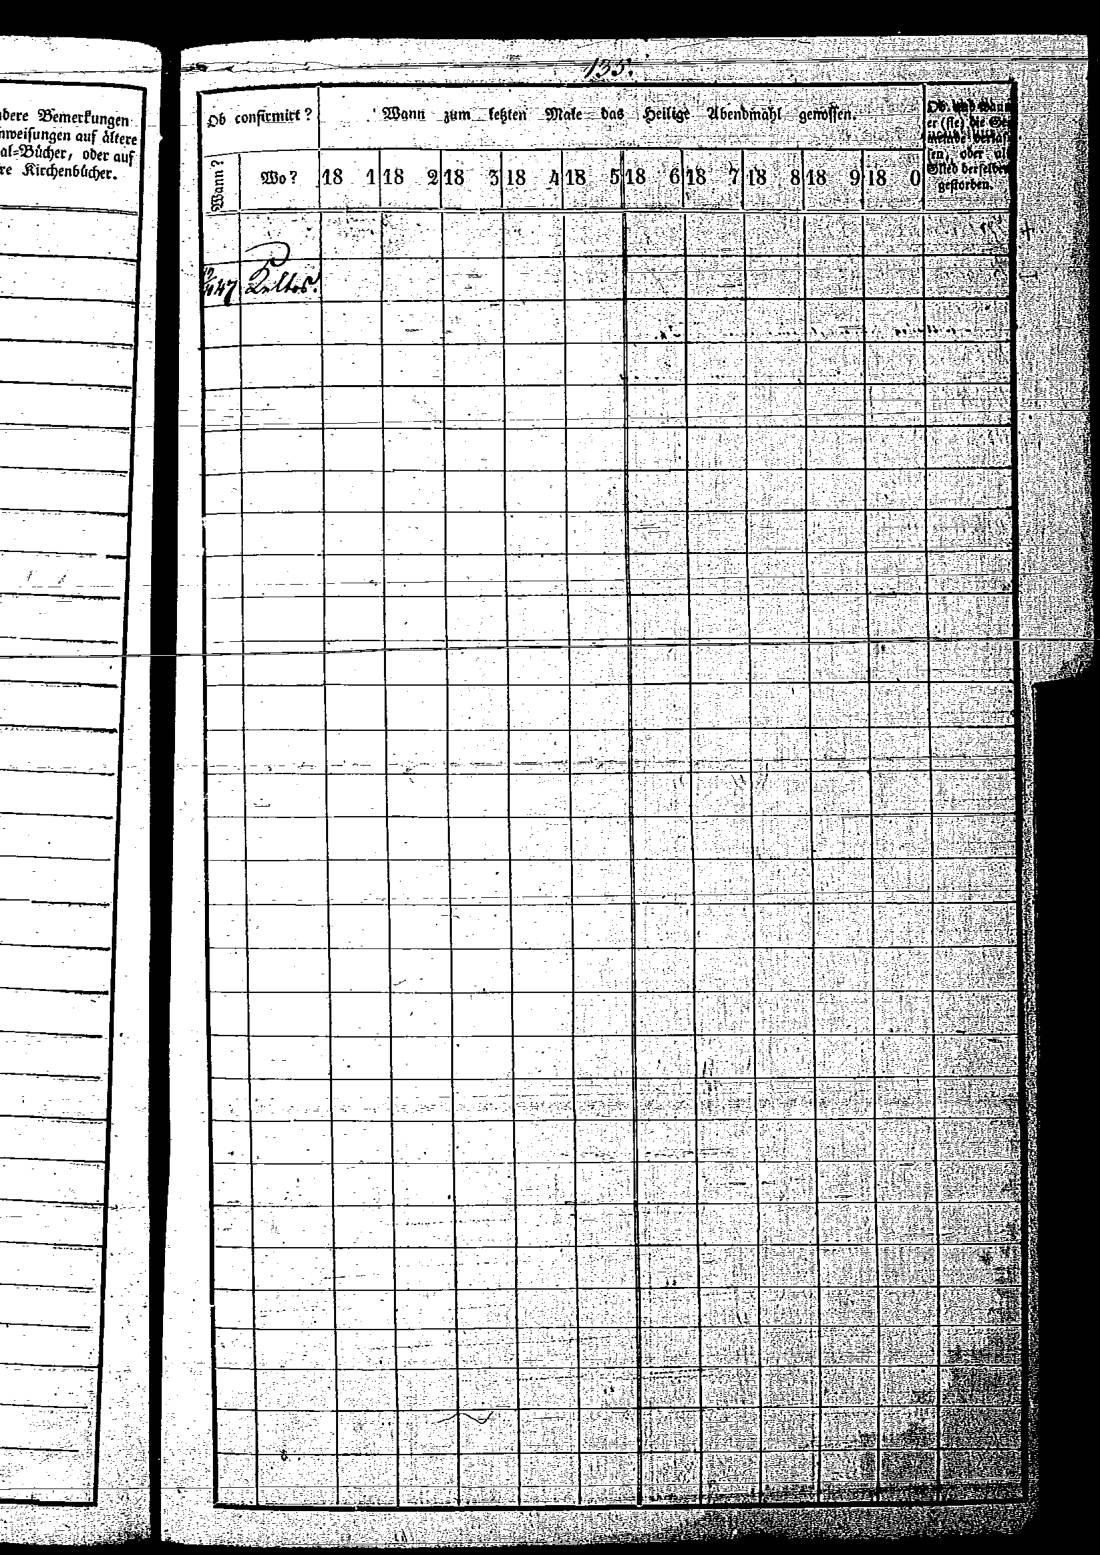 135.
Bemerkungen
auf ältere
al=Bücher, oder auf
Kirchenbücher.
Ob confirmirt?
Wann zum letzten Male das Heilige Abendmahl genossen.
Ob und wann
er (sie) die Ge
meinde verlas
sen, oder als
Glied derselben
gestorben.
Wann?
Wo?
18 1
18 2
18 3
18 4
18 5
18 6
18 7
18 8
18 9
18 0
47